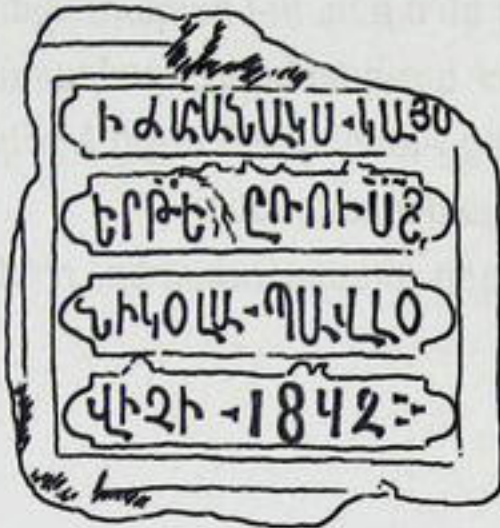 Ի ԺԱՄԱՆԱԿՍ ԿԱՅՍ
ԵՐԹԵ ԸՌՈՒՍՑ
ՆԻԿՕԼԱ-ՊԱՎԼՕ
ՎԻՉԻ - 1842